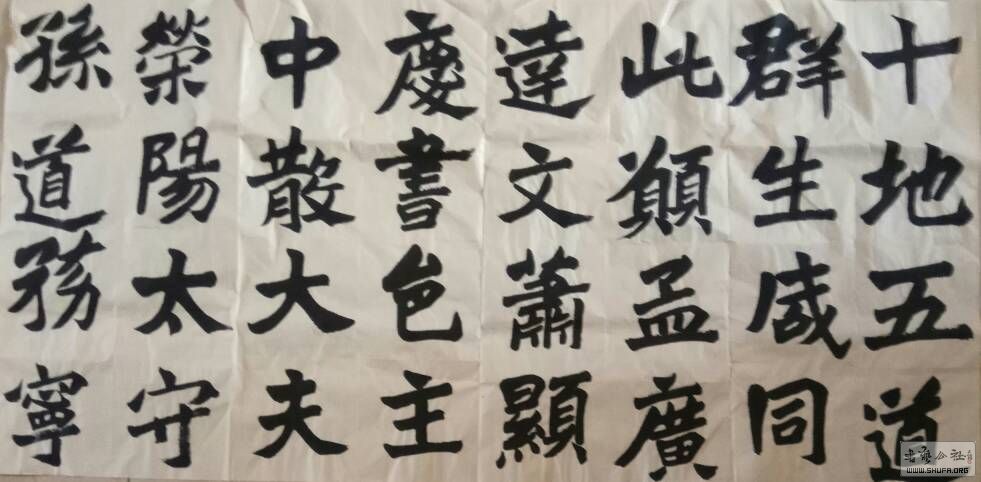 十地五道
群生咸同
此願孟廣
達文蕭顯
慶書邑主
中散大夫
榮陽太守
孫道務寧
WWW.SHUFA.ORG